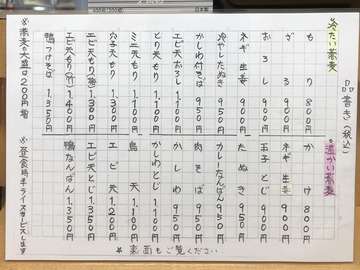 400字(200枚)
日本製
品書き(税込)
冷たい蕎麦
もり 800円
ざる 900円
おろし 900円
ネギ生姜 900円
冷やしたぬき 950円
かしわ付そば 950円
エビ天おろし 1.100円
とり天もり 1.100円
ミニ天もり 1.100円
穴子天もり 1.300円
エビ天もり 1.300円
エビ天もり(竹) 1.400円
鴨つけそば 1.350円
*温かい蕎麦
かけ 800円
ネギ生姜 900円
玉子とじ 900円
たぬき 900円
カレーなんばん 950円
肉そば 950円
かしわ 950円
かしわとじ 1.100円
鳥天 1.100円
エビ天 1.200円
エビ天とじ 1.300円
鴨なんばん 1.350円
※蕎麦の大盛は200円増
※昼食時半ライスサービスします
*裏面もご覧ください